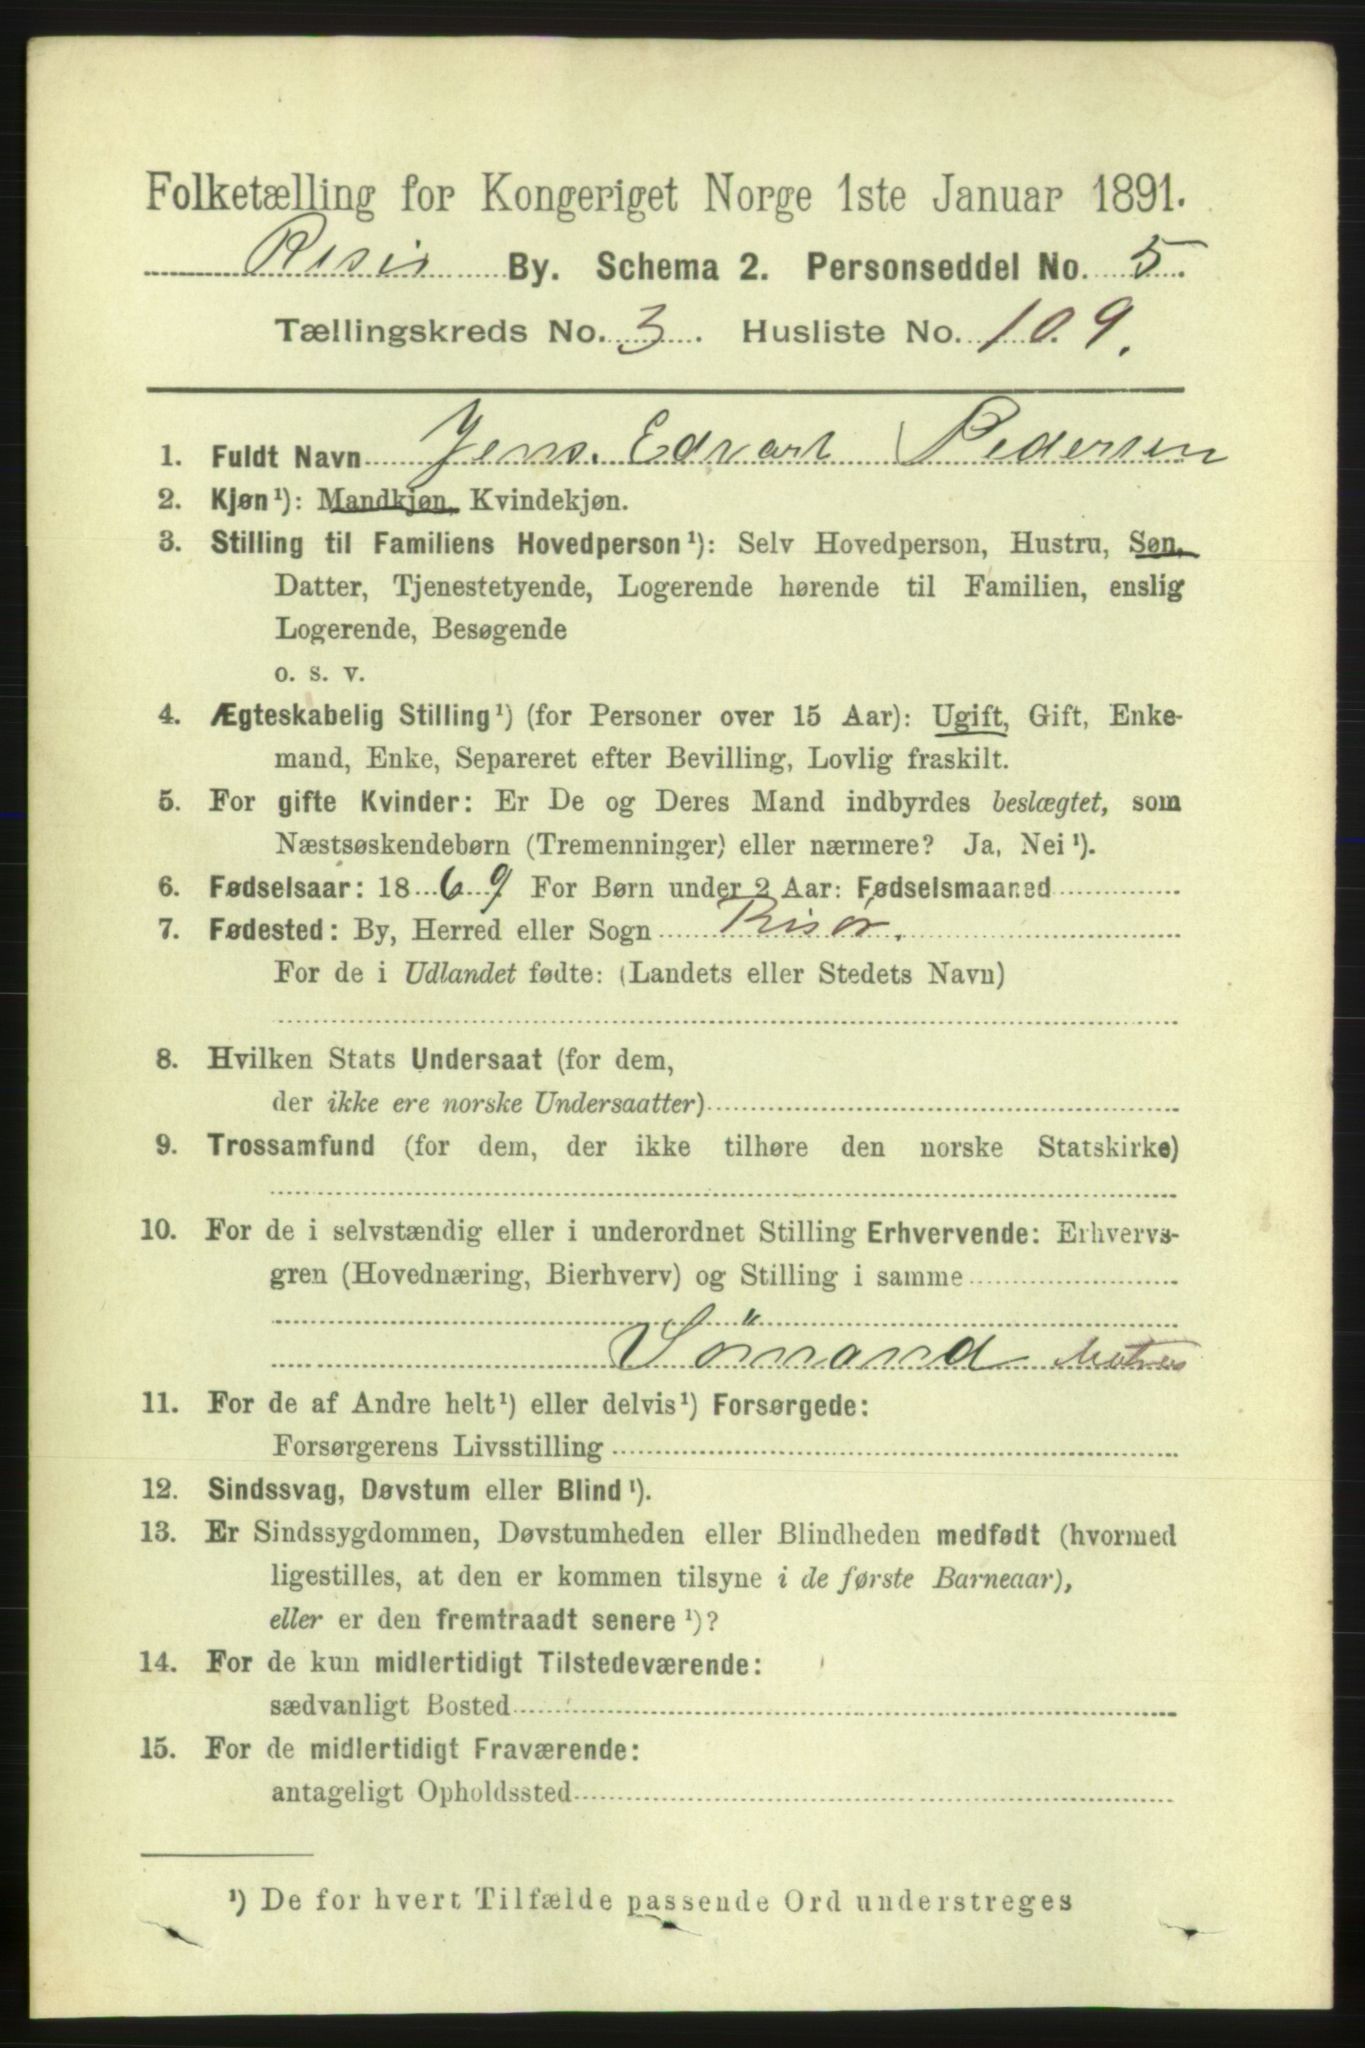 Folketælling for Kongeriget Norge 1ste Januar 1891.
Risør By. Schema 2. Personseddel No. 5.
Tællingskreds No. 3. Husliste No. 109.
1. Fuldt Navn Jens. Edvart Pedersen
2. Kjøn¹): Mandkjøn, Kvindekjøn.
3. Stilling til Familiens Hovedperson¹): Selv Hovedperson, Hustru, Søn,
Datter, Tjenestetyende, Logerende hørende til Familien, enslig
Logerende, Besøgende
o. s. v.
4. Ægteskabelig Stilling¹) (for Personer over 15 Aar): Ugift, Gift, Enke-
mand, Enke, Separeret efter Bevilling, Lovlig fraskilt.
5. For gifte Kvinder: Er De og Deres Mand indbyrdes beslægtet, som
Næstsøskendebørn (Tremenninger) eller nærmere? Ja, Nei¹).
6. Fødselsaar: 1869 For Børn under 2 Aar: Fødselsmaaned
7. Fødested: By, Herred eller Sogn Risør.
For de i Udlandet fødte: (Landets eller Stedets Navn)
8. Hvilken Stats Undersaat (for dem,
der ikke ere norske Undersaatter)
9. Trossamfund (for dem, der ikke tilhøre den norske Statskirke)
10. For de i selvstændig eller i underordnet Stilling Erhvervende: Erhvervs-
gren (Hovednæring, Bierhverv) og Stilling i samme
Sömand Matros
11. For de af Andre helt¹) eller delvis¹) Forsørgede:
Forsørgerens Livsstilling
12. Sindssvag, Døvstum eller Blind¹).
13. Er Sindssygdommen, Døvstumheden eller Blindheden medfødt (hvormed
ligestilles, at den er kommen tilsyne i de første Barneaar),
eller er den fremtraadt senere¹)?
14. For de kun midlertidigt Tilstedeværende:
sædvanligt Bosted
15. For de midlertidigt Fraværende:
antageligt Opholdssted
¹) De for hvert Tilfælde passende Ord understreges